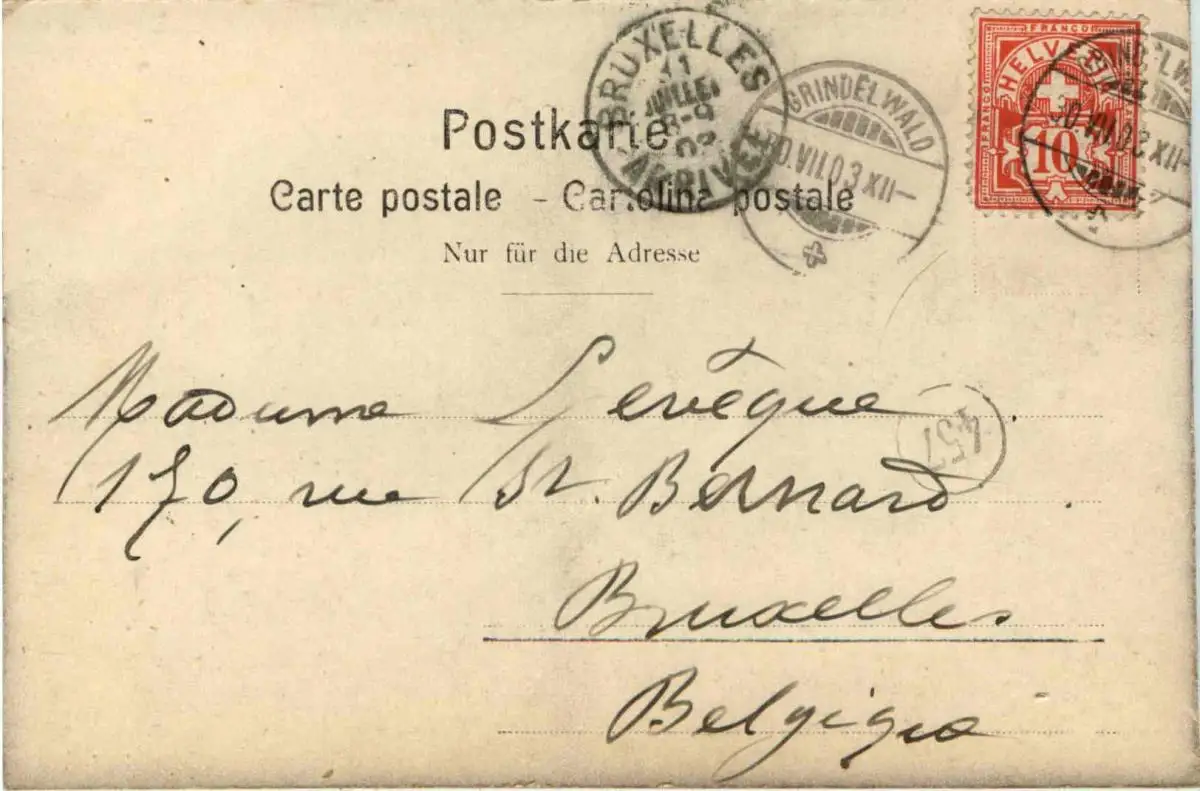 FRANCO
FRANCO
HELVETIA
10
BRUXELLES
11
JUILLET
8-9
03
ARRIVÉE
GRINDELWALD
0.VII.03 XII-
30.VII.03 XII-
Postkarte
Carte postale - Cartolina postale
Nur für die Adresse
Madame Levêque
457
170, rue St. Bernard
Bruxelles
Belgigia